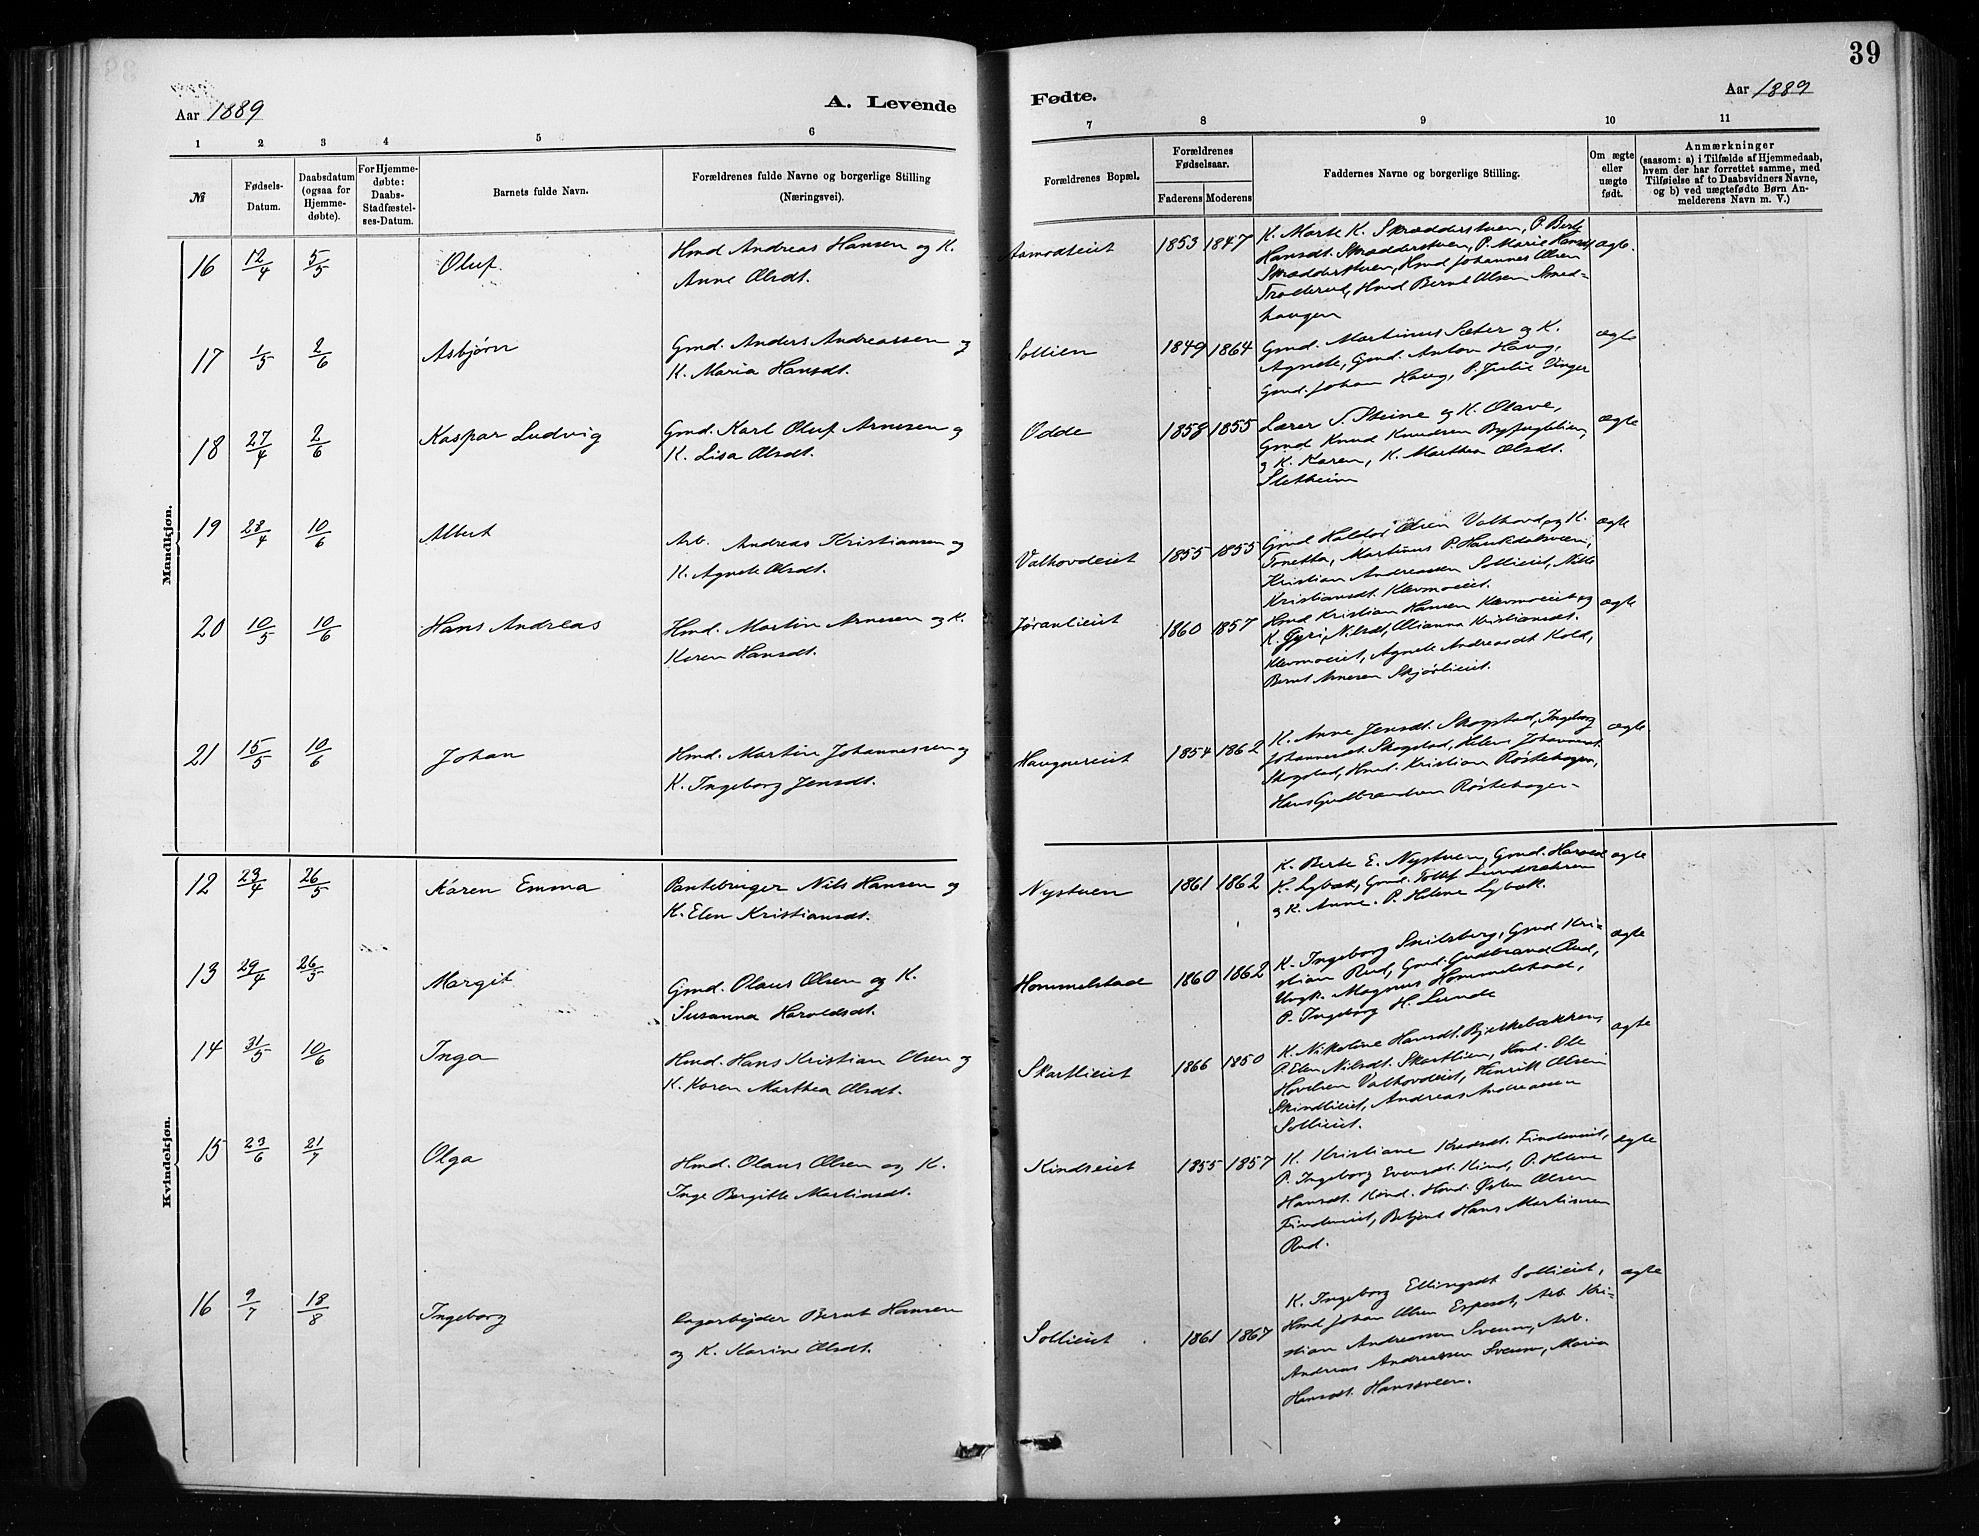 39
Aar 1889
A. Levende
Fødte.
Aar 1889
1 2 3 4 5 6 7 8 9 10 11
№
Fødsels-
Datum.
Daabsdatum
(ogsaa for
Hjemme-
døbte).
For Hjemme-
døbte:
Daabs-
Stadfæstel-
ses-Datum.
Barnets fulde Navn.
Forældrenes fulde Navne og borgerlige Stilling
(Næringsvei).
Forældrenes Bopæl.
Forældrenes
Fødselsaar.
Faderens Moderens
Faddernes Navne og borgerlige Stilling.
Om ægte
eller
uægte
født.
Anmærkninger
(saasom: a) i Tilfælde af Hjemmedaab,
hvem der har forrettet samme, med
Tilføielse af to Daabsvidners Navne,
og b) ved uægtefødte Børn An-
melderens Navn m. V.)
Mandkjøn.
16 12/4 5/5 Oluf.
Hmd Andreas Hansen og K.
Anne Olsdt.
Aamodteiet 1853 1847
K. Marte K. Skrædderstuen, P. Berte
Hansdt. Skrædderstuen, P. Marie Hansdt
Skrædderstuen, Hmd Johannes Olsen
Hmd Bernt Olsen Smed-
haugen
ægte.
17 1/5 2/6 Asbjørn
Gmd. Anders Andreassen og
K. Maria Hansdt.
Sollien 1849 1864
Gmd. Martinus Sæter og K.
Agnete, Gmd. Anton Haug,
Gmd. Johan Haug, P. Julie Unger
ægte
18 27/4 2/6 Kaspar Ludvig
Gmd. Karl Oluf Arnesen og
K. Lisa Olsdt.
Odde 1858 1855
Lærer S. Steine og K. Olave,
Gmd Knud Knudsen
og K. Karen, K. Marthea Olsdt.
Sletheim
ægte
19 28/4 10/6 Albert
Arb. Andreas Kristiansen og
K. Agnete Olsdt.
Valhovdeiet 1855 1855
Gmd Haldor Olsen Valhovd og K.
Tonetta, Martinus P.
Kristian Andreassen Sollieiet,
Kristiansdt. Klevmoeiet.
ægte
20 10/5 10/6 Hans Andreas
Hmd. Martin Arnesen og K.
Karen Hansdt.
Jøranlieiet 1860 1857
Hmd Kristian Hansen Klevmoeiet og
K. Gyri Nilsdt, Kristiansdt.
Klevmoeiet, Agnete Andreasdt Kold,
Bernt Arnesen Skjørlieiet.
ægte
21 15/5 10/6 Johan
Hmd. Martin Johannessen og
K. Ingeborg Jensdt.
Haugnereiet 1854 1862
K. Anne Jensdt. Skogstad, Ingeborg
Johannesdt Skogstad, Helene Johannesdt.
Skogstad, Hmd. Kristian Røstehagen,
Hans Gudbrandsen Røstehagen
ægte
Kvindekjøn.
12 23/4 26/5 Karen Emma
Pantebruger Nils Hansen og
K. Elen Kristiansdt.
Nystuen 1861 1862
K. Berte E. Nystuen, Gmd. Harald
K. Lybæk, Gmd. Tollef
og K. Anne. P. Helene Lybæk.
ægte
13 29/4 26/5 Margit
Gmd. Olaus Olsen og K.
Susanna Haroldsdt.
Hommelstad 1860 1862
K. Ingeborg Snilsberg, Gmd Kri-
stian Rud, Gmd. Gudbrand Rud,
Ungk. Magnus Hommelstad,
P. Ingeborg H. Lunde
ægte
14 31/5 10/6 Inga
Hmd. Hans Kristian Olsen og
K. Karen Marthea Olsdt.
Skartlieiet 1866 1850
K. Nikoline Hansdt. Bjerkebakken,
P. Elen Nilsdt. Skartlien, Hmd. Ole
Hovelsen Valhovdeiet, Henrik Olsen
Skindlieiet, Andreas Andreassen
Sollieiet.
ægte
15 23/6 21/7 Olga
Hmd. Olaus Olsen og K.
Inge Bergitte Martinsdt.
Kindseiet 1855 1857
K. Kristiane Findeneiet,
P. Ingeborg Evensdt. Kind, P. Helene
Hansdt. Kind. Hmd. Østen Olsen
Findeneiet, Betjent Hans Martinsen
Rud.
ægte
16 9/7 18/8 Ingeborg
Dagarbejder Bernt Hansen
og K. Karine Olsdt.
Sollieiet 1861 1867
K. Ingeborg Ellingsdt Sollieiet,
Hmd Johan Olsen Espeset, Arb. Kri-
stian Andreassen Sveum, Arb.
Andreas Andreassen Sveum, Maria
Hansdt. Hanssveen.
ægte